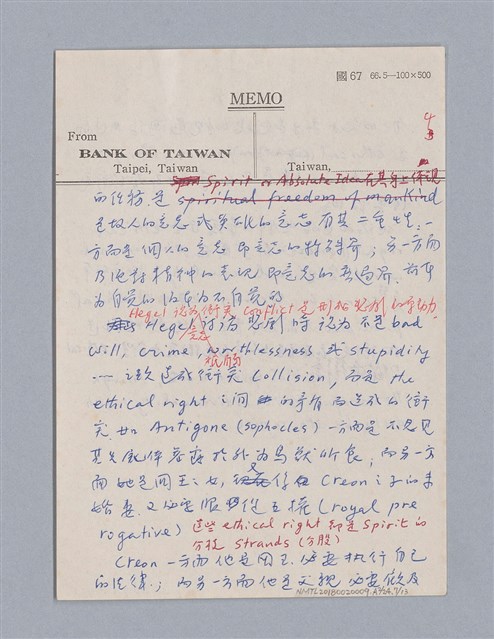 國 67 66.5—100×500
MEMO
4
From
BANK OF TAIWAN
Taipei, Taiwan
Taiwan,
Spirit or Absolute Idea 在其身上体現
的任務是 spiritual freedom of mankind
是故人的意志或英雄的意志有其二重性,一
方面是個人的意志即意志的特殊界;另一方面
乃絶対精神的表現即意志的普遍界. 前者
為自覚的後者為不自覚的
Hegel 認為衝突 conflict 是形成悲劇的原動力
Hegel 討論悲劇時認為不是 bad
will, crime, worthlessness 或 stupidity
之故造成衝突 Collision, 而是 the
ethical right 之間的矛盾而造成的衝
突 如 Antigone (Sophocles) 一方面是不忍見
其兄屍体委棄於外為鳥獣所食,而另一方
面她是国王之女,又係 Creon 之子的未
婚妻. 又必要服從王権 (royal pre
rogative) 這些 ethical right 却是 Spirit 的
分枝 strands (分股)
Creon 一方面他是国王必要执行自己
的法律;而另一方面他是父親必要顧及
NMTL20180020009